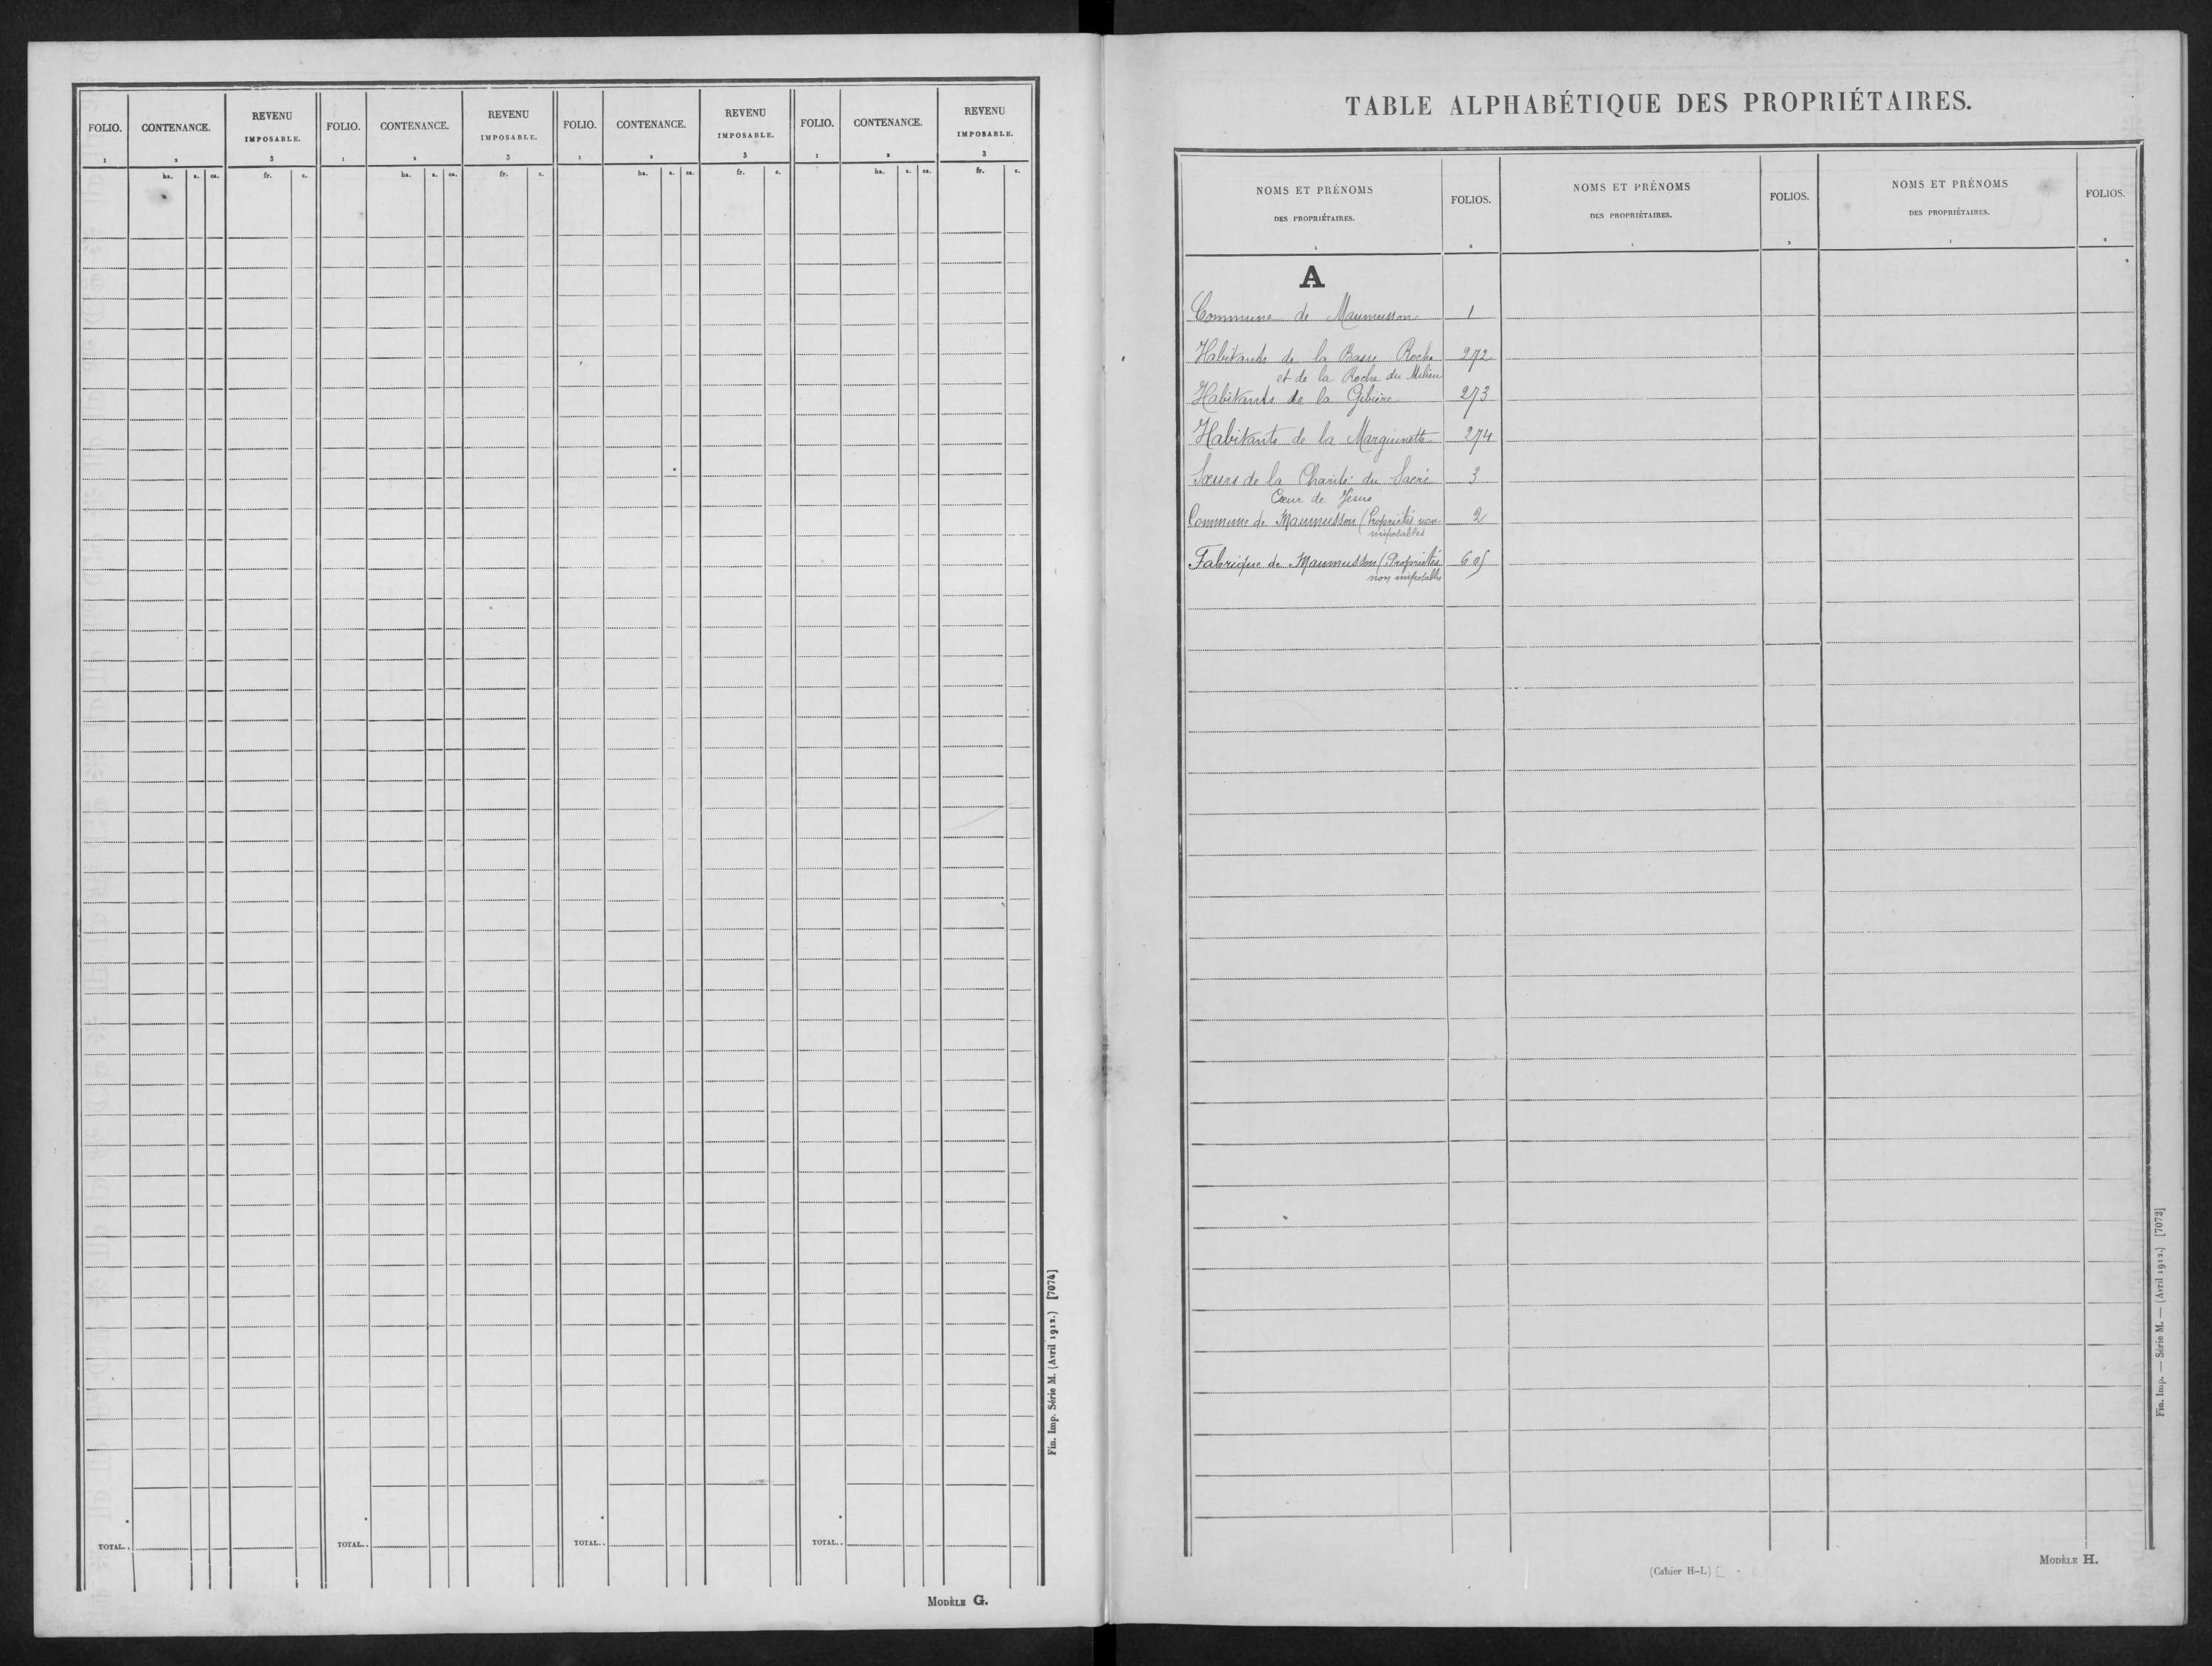 FOLIO. CONTENANCE. REVENU IMPOSABLE. FOLIO. CONTENANCE. REVENU IMPOSABLE. FOLIO. CONTENANCE. REVENU IMPOSABLE. FOLIO. CONTENANCE. REVENU IMPOSABLE.
1 2 3 1 2 3 1 2 3 1 2 3
ha. a. ca. fr. c. ha. a. ca. fr. c. ha. a. ca. fr. c. ha. a. ca. fr. c.
TOTAL.. TOTAL.. TOTAL.. TOTAL..
Fin. Imp. Série M. (Avril 1912.) [7074]
MODÈLE G.
TABLE ALPHABÉTIQUE DES PROPRIÉTAIRES.
NOMS ET PRÉNOMS DES PROPRIÉTAIRES. FOLIOS. NOMS ET PRÉNOMS DES PROPRIÉTAIRES. FOLIOS. NOMS ET PRÉNOMS DES PROPRIÉTAIRES. FOLIOS.
1 2 1 2 1 2
A
Commune de Maumusson 1
Habitants de la Basse Roche 272
et de la Roche du Milieu
Habitants de la Gibière 273
Habitants de la 274
Sœurs de la Charité du Sacré 3
Cœur de Jésus
Commune de Maumusson (Propriétés non 2
imposables
Fabrique de Maumusson (Propriétés 605
non imposables
Fin. Imp. — Série M. — (Avril 1912.) [7073]
(Cahier H-L)
MODÈLE H.